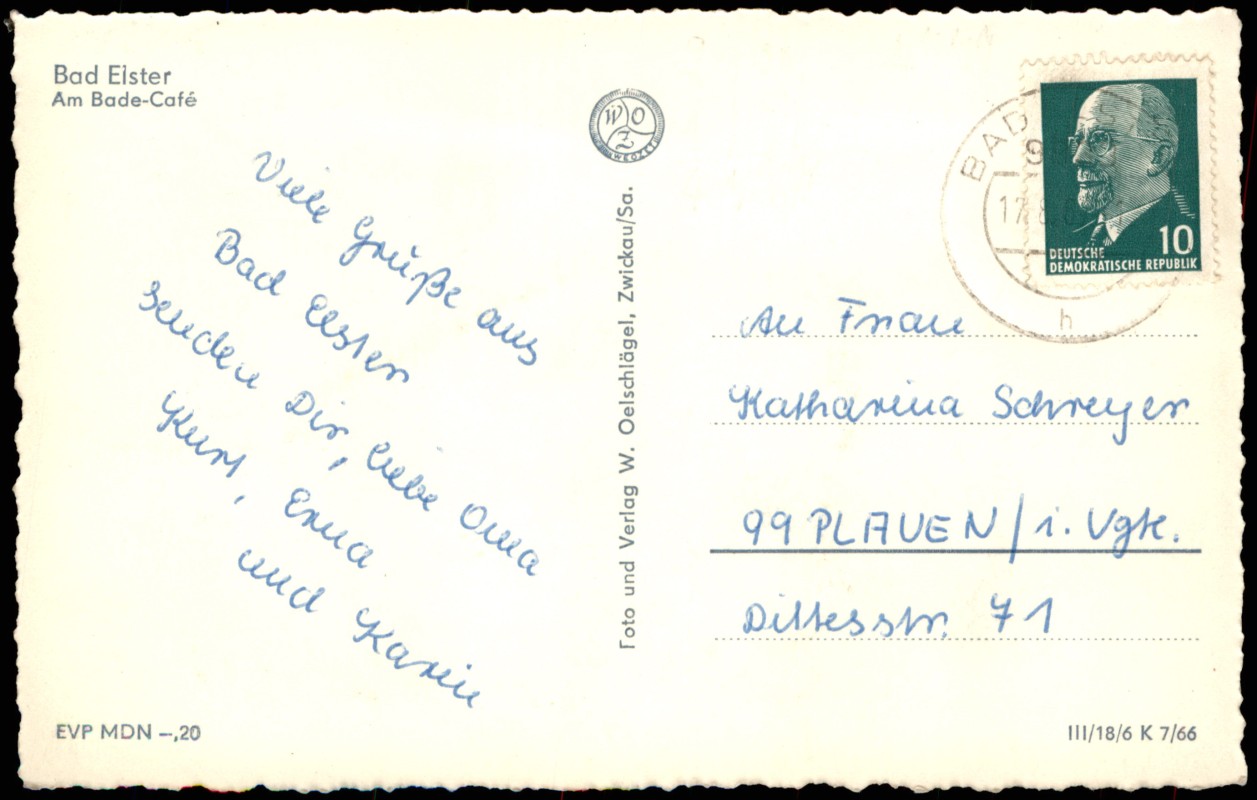 Bad Elster
Am Bade-Café
Viele Grüße aus
Bad Elster
senden Dir, liebe Oma
Kurt, Erna
und Karin
EVP MDN –,20
WOZ
Foto und Verlag W. Oelschlägel, Zwickau/Sa.
BAD
17.8.
h
10
DEUTSCHE
DEMOKRATISCHE REPUBLIK
An Frau
Katharina Schreyer
99 PLAUEN/i. Vgtl.
Dittesstr. 71
III/18/6 K 7/66